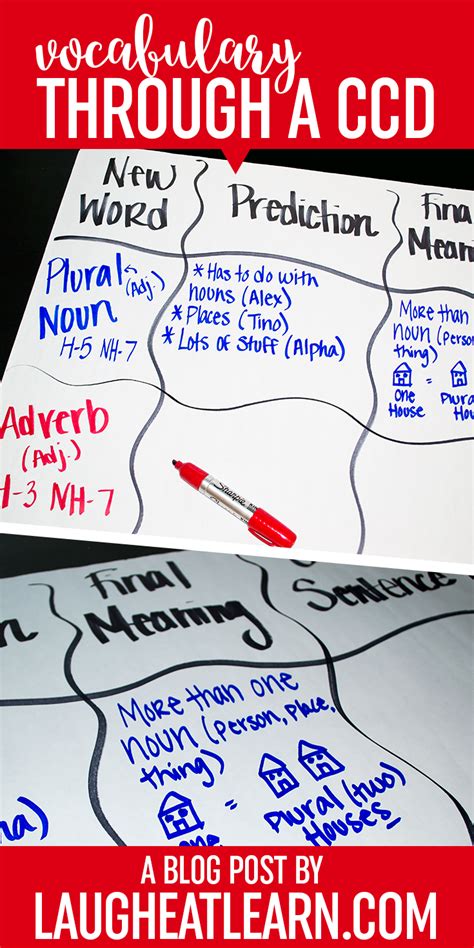 vocabulary
THROUGH A CCD
New
WORD
Prediction
Final
Mean
Plural
(Adj.)
Noun
H-5 NH-7
*Has to do with
nouns (Alex)
*Places (Tino)
*Lots of Stuff (Alpha)
More than
noun (Person
thing)
=
One
House
Plural
House
Adverb
(Adj.)
H-3 NH-7
Sharpie
n
Final
Meaning
Sentence
More than one
noun (Person, place,
thing)
=
one
Plural (two)
Houses
a)
A BLOG POST BY
LAUGHEATLEARN.COM